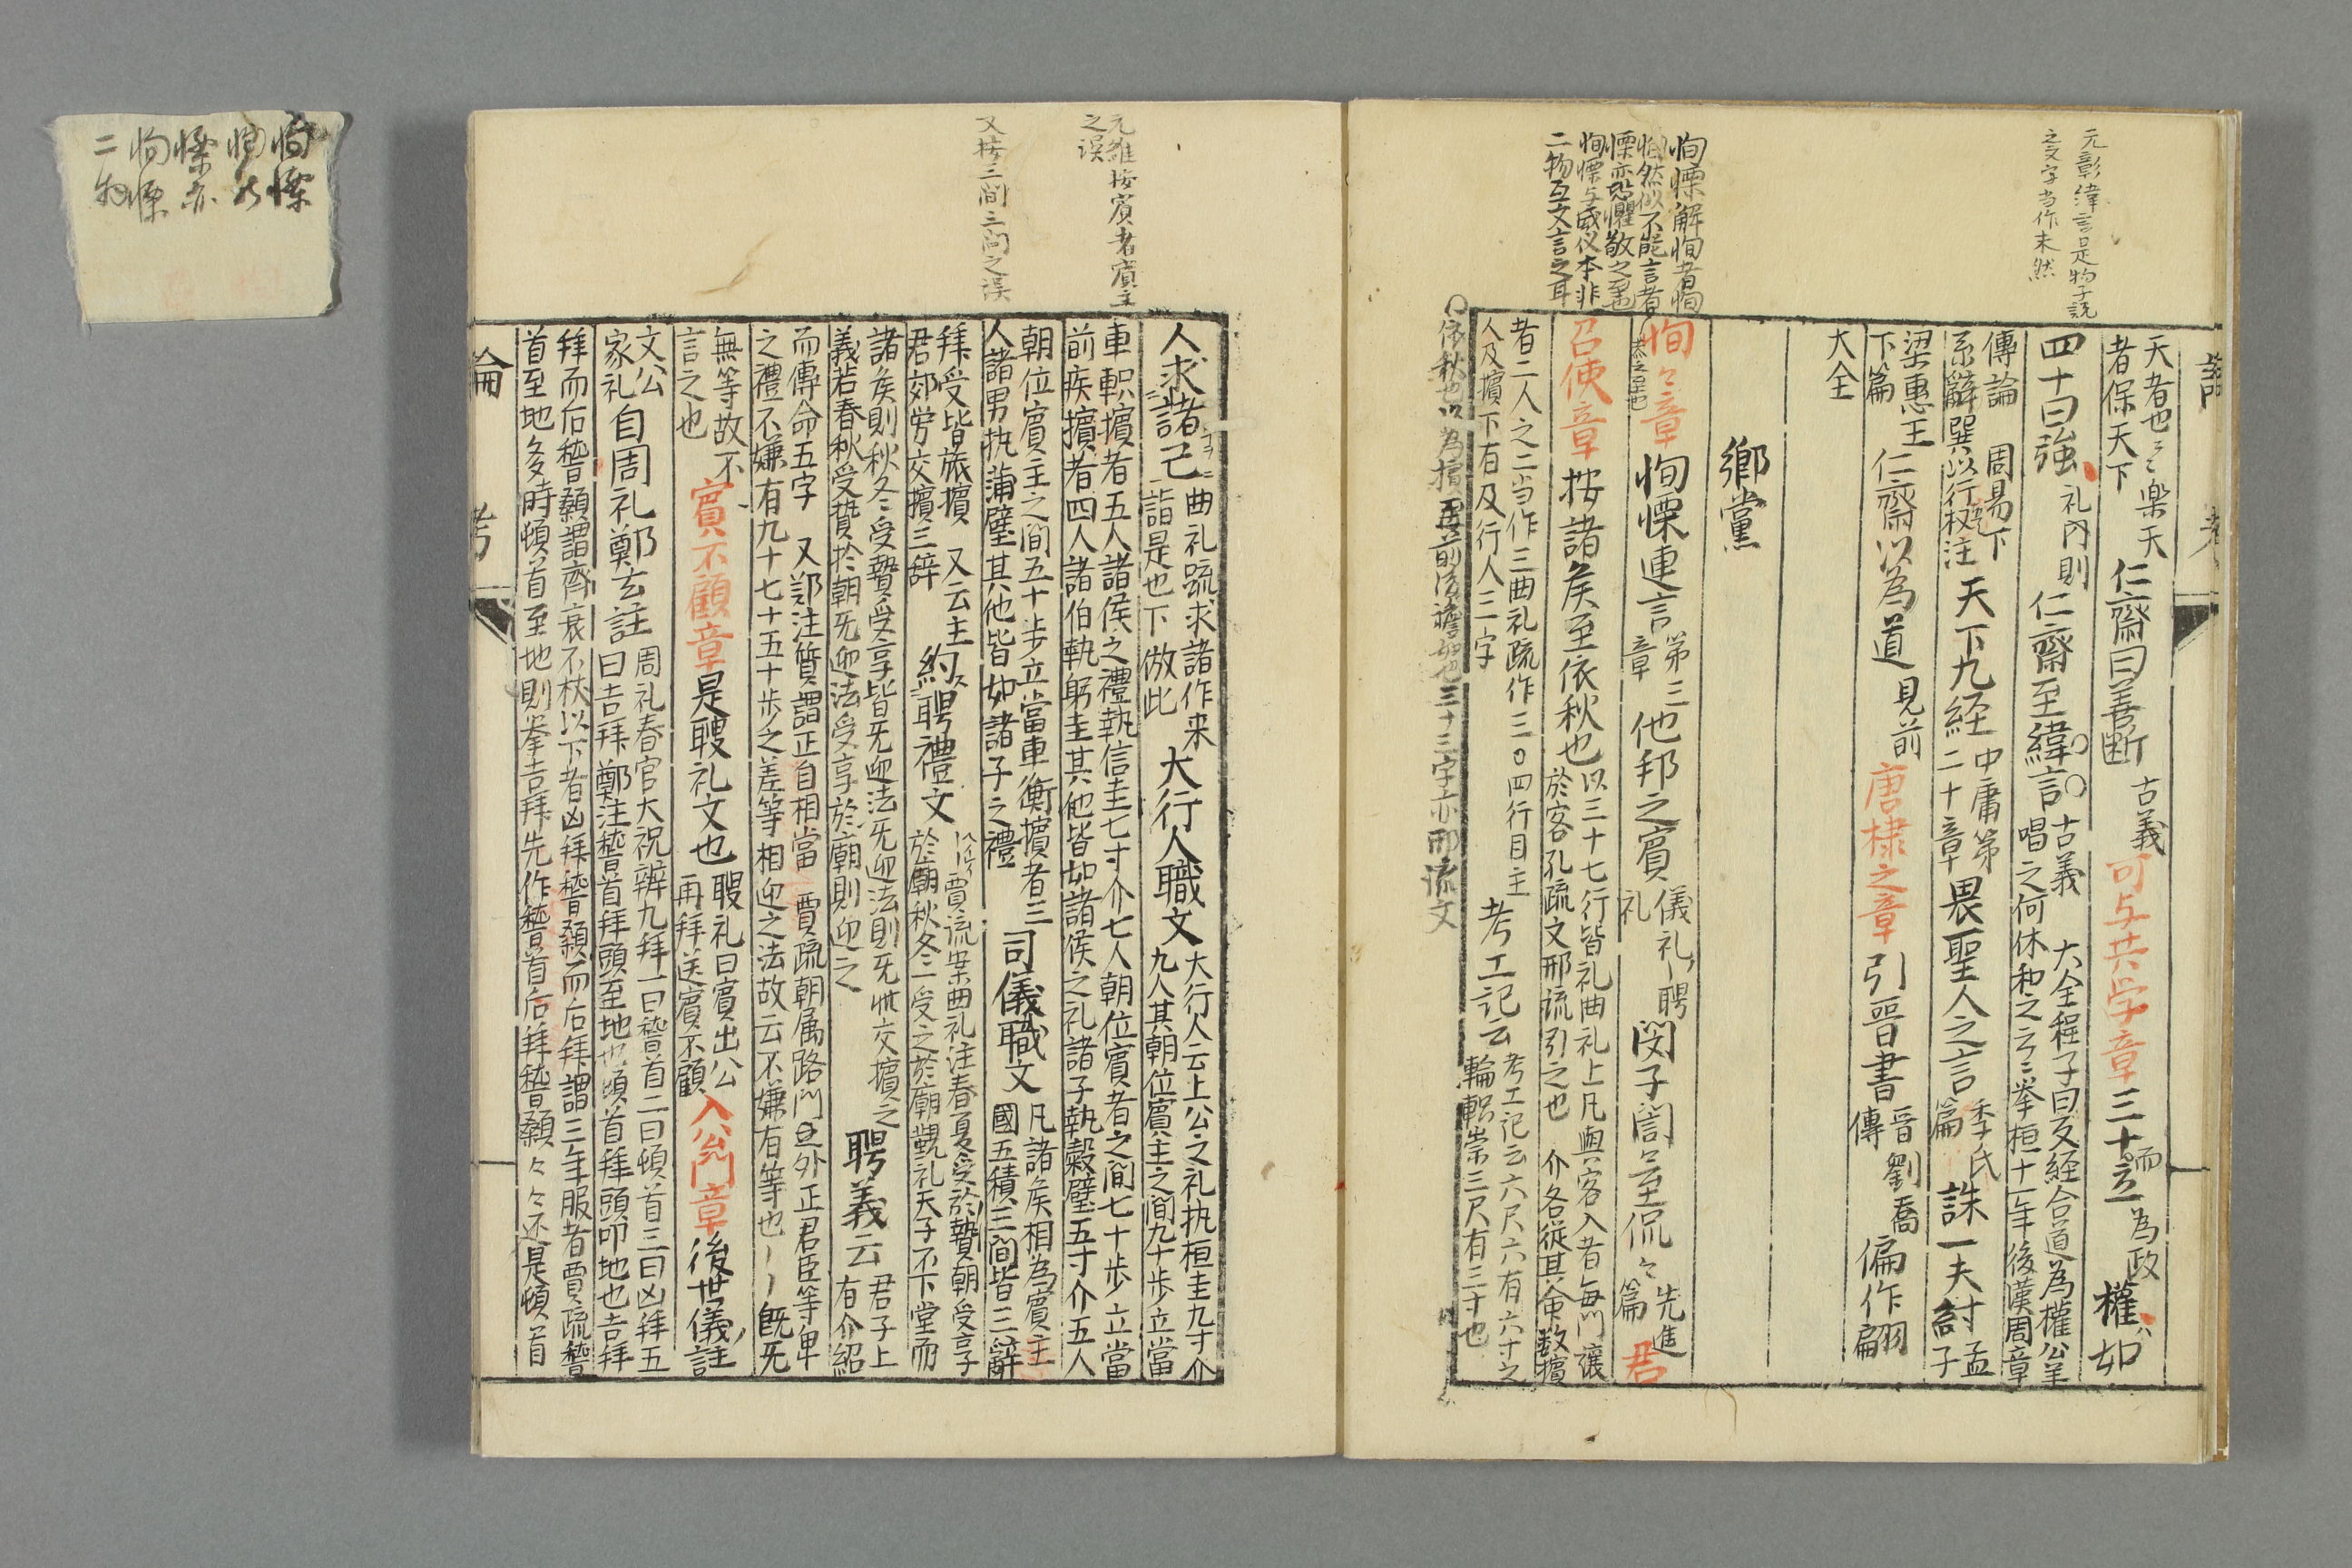 元彰緯言是物子説
之文字当作未然
天者也〻楽天
者保天下
仁齋曰善断
古義
可与共学章
三十而立
為政
權
如
四十曰強
礼内則
仁齋至緯言
古義
唱之何休和之云〻挙桓十一年後漢周章
大全程子曰反経合道為權公羊
傳論
周易下
系辭巽以行权注
天下九経
中庸第
二十章
畏聖人之言
季氏
篇
誅一夫紂
孟
子
梁惠王
下篇
仁齋以為道
見前
唐棣之章
引晋書
晋劉喬
傳
偏作翩
大全
鄉黨
恂慄解恂者恂
恂然似不能言者
慄亦恐懼敬之至也
恂慄与威仪本非
二物互文言之耳
恂〻章
恭之至也
恂慄連言
第三
章
他邦之賓
儀礼聘
礼
閔子誾至侃〻
先進
篇
君
召使章
按諸矦至依秋也
以三十七行皆礼曲礼上凡與客入者每門讓
於客孔疏文邢疏引之也 介各從其命数擯
者二人之二当作三曲礼疏作三〇四行目主
人及擯下有及行人三字
考工記云
考工記云六尺六有六寸之
輪軹崇三尺有三寸也
元維按賓者賓主
之误
又按二間三问之误
人求諸己
曲礼疏求諸作来
詣是也下倣此
大行人職文
大行人云上公之礼执桓圭九寸介
九人其朝位賓主之間九十歩立當
車軹擯者五人諸侯之禮執信圭七寸介七人朝位賓者之间七十歩立當
前疾擯者四人諸伯執躬圭其他皆如諸侯之礼諸子執穀璧五寸介五人
朝位賓主之间五十歩立當車衡擯者三
人諸男执蒲璧其他皆如諸子之禮
司儀職文
凡諸矦相為賓主
國五積三間皆三辭
拜受皆旅擯 又云主
君郊労交擯三辞
約聘禮文
賈疏案曲礼注春夏受於贄朝受享
於廟秋冬一受之於廟觀礼天子不下堂而
諸矦則秋冬受贄受享皆旡迎法旡迎法則旡此交擯之
義若春秋受贄於朝旡迎法受享於廟則迎之
聘義云
君子上
有介紹
而傳命五字 又郑注質謂正自相當 賈疏朝属路门旦外正君臣等卑
之禮不嫌有九十七十五十歩之差等相迎之法故云不嫌有等也 既旡
無等故不
言之也
賓不顧章
是聘礼文也
聘礼曰賓出公
再拜送賓不顧
入公门章
後世儀註
文公
家礼
自周礼鄭玄註
周礼春官大祝辨九拜一曰稽首二曰頓首三曰凶拜五
曰吉拜鄭注稽首拜頭至地也頓首拜頭叩地也吉拜
拜而后稽顙謂齊衰不杖以下者凶拜稽顙而后拜謂三年服者賈疏稽
首至地多時頓首至地則挙吉拜先作稽首后拜稽顙々々还是頓首
論
考
恂慄
恂然
慄亦
恂慄
二物